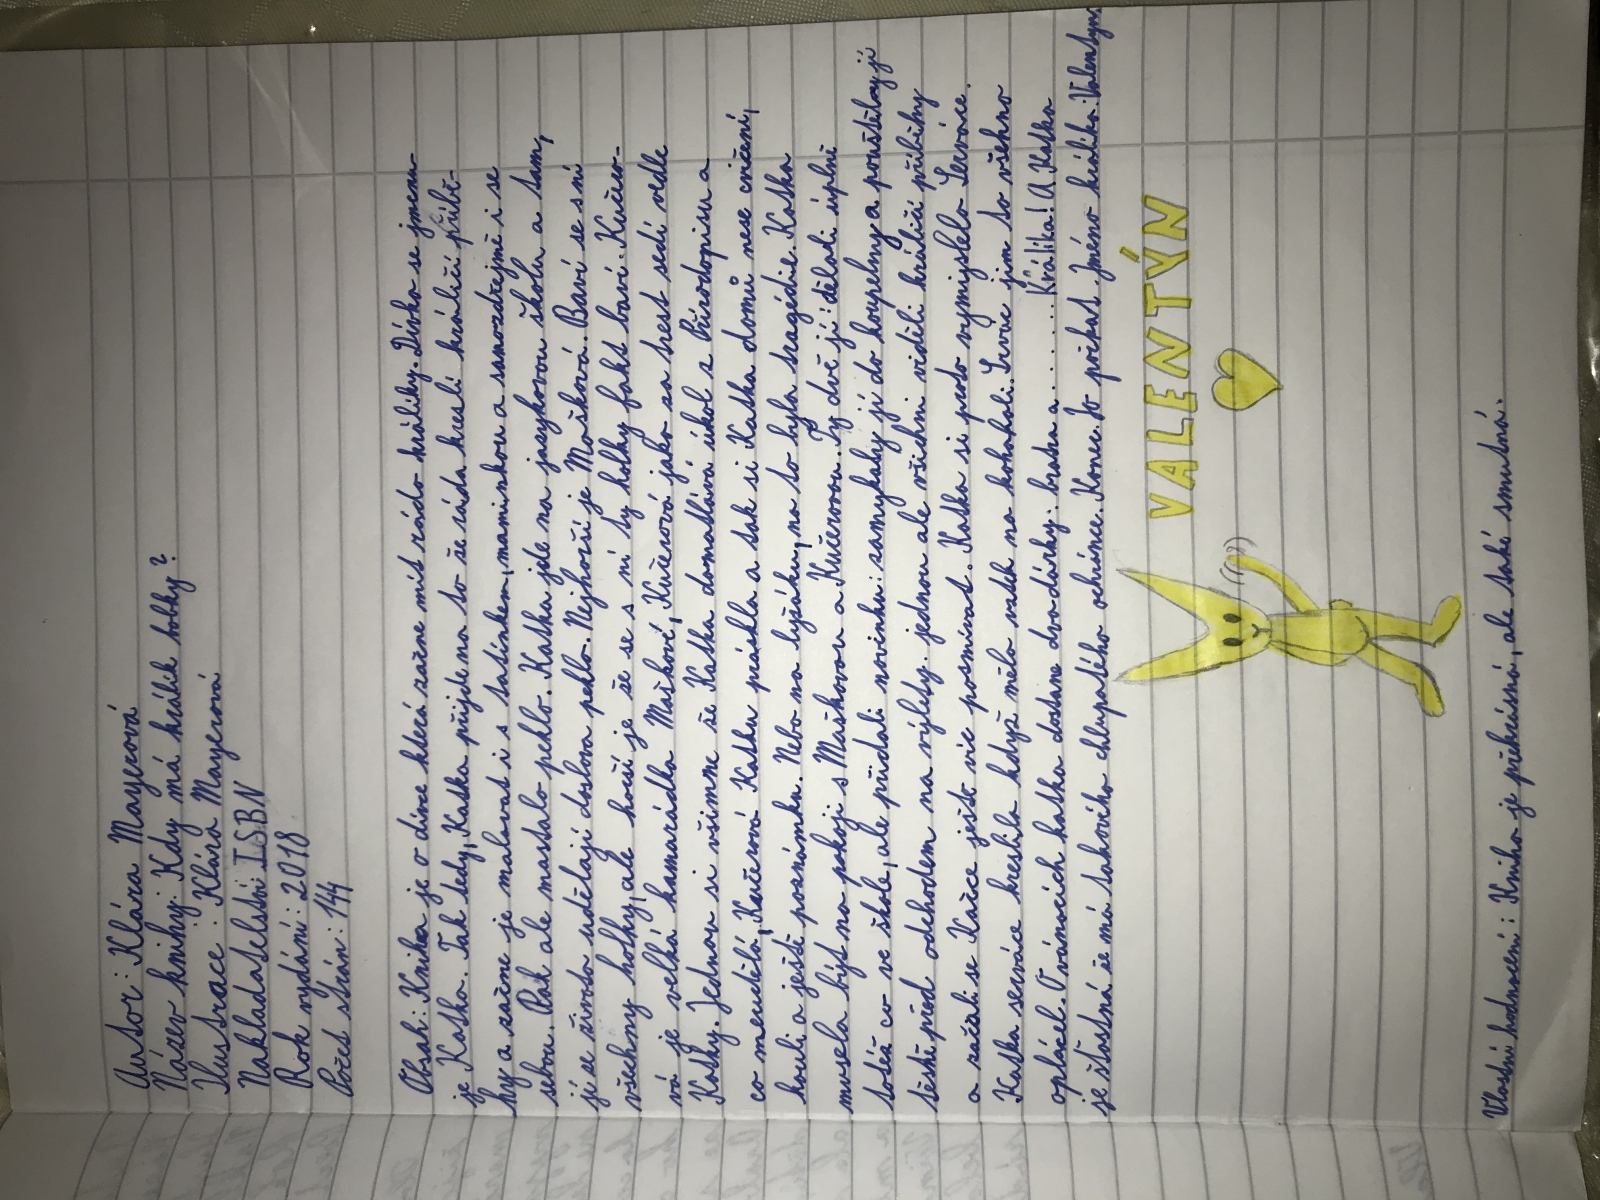 Autor: Klára Mayerová
Název knihy: Kdy má králík hobby?
Ilustrace: Klára Mayerová
Nakladatelství ISBN
Rok vydání: 2018
Počet strán: 144
Obsah: Kniha je o dívce která začne mít ráda králíky. Dívka se jmenu-
je Katka. Tak tedy, Katka přijde na to že ráda kreslí králičí příbě-
hy a začne je malovat i s tatínkem, maminkou a samozdřejmě i se
sebou. Pak ale nastalo peklo. Katka jede na jazykovou školu a tam,
jí ze života udělají doslova peklo. Nejhorší je Mošková. Baví se s ní
všechny holky, ale horší je že se s ní ty holky fakt baví. Kučero-
vá je velká kamarádka Maškové, Kučerová jako za trest sedí vedle
Katky. Jednou si všimne že Katka domatlává úkol z Přírodopisu a
co neudělá, Kučerová Katku práskla a tak si Katka domů nese cvičení,
kouli a ještě poznámku. Nebo na lyžáku, no to byla tragédie. Katka
musela být na pokoji s Maškovou a Kučerovou. Ty dvě jí dělali úplně
totéž co ve škole, ale přidali novinku: zamykaly jí do koupelny a pouštěly jí
těstě před odchodem na výlety. jednou ale všichni viděli králičí příběhy
a začali se Kátce ještě víc posmívat. Katka si proto vymyslela Serváce.
Katka serváce kreslila když měla vztek na kohokoli. Servác jim to všechno
oplácel. O vánocích katka dostane dva dárky: bratra a........Králíka! A Katka
je šťastná že má takového chlupatého ochránce. Konec. Jo počkat. Jméno králíka: Valentýn.
VALENTÝN
Vlastní hodnocení: Kniha je překrásná, ale také smutná.